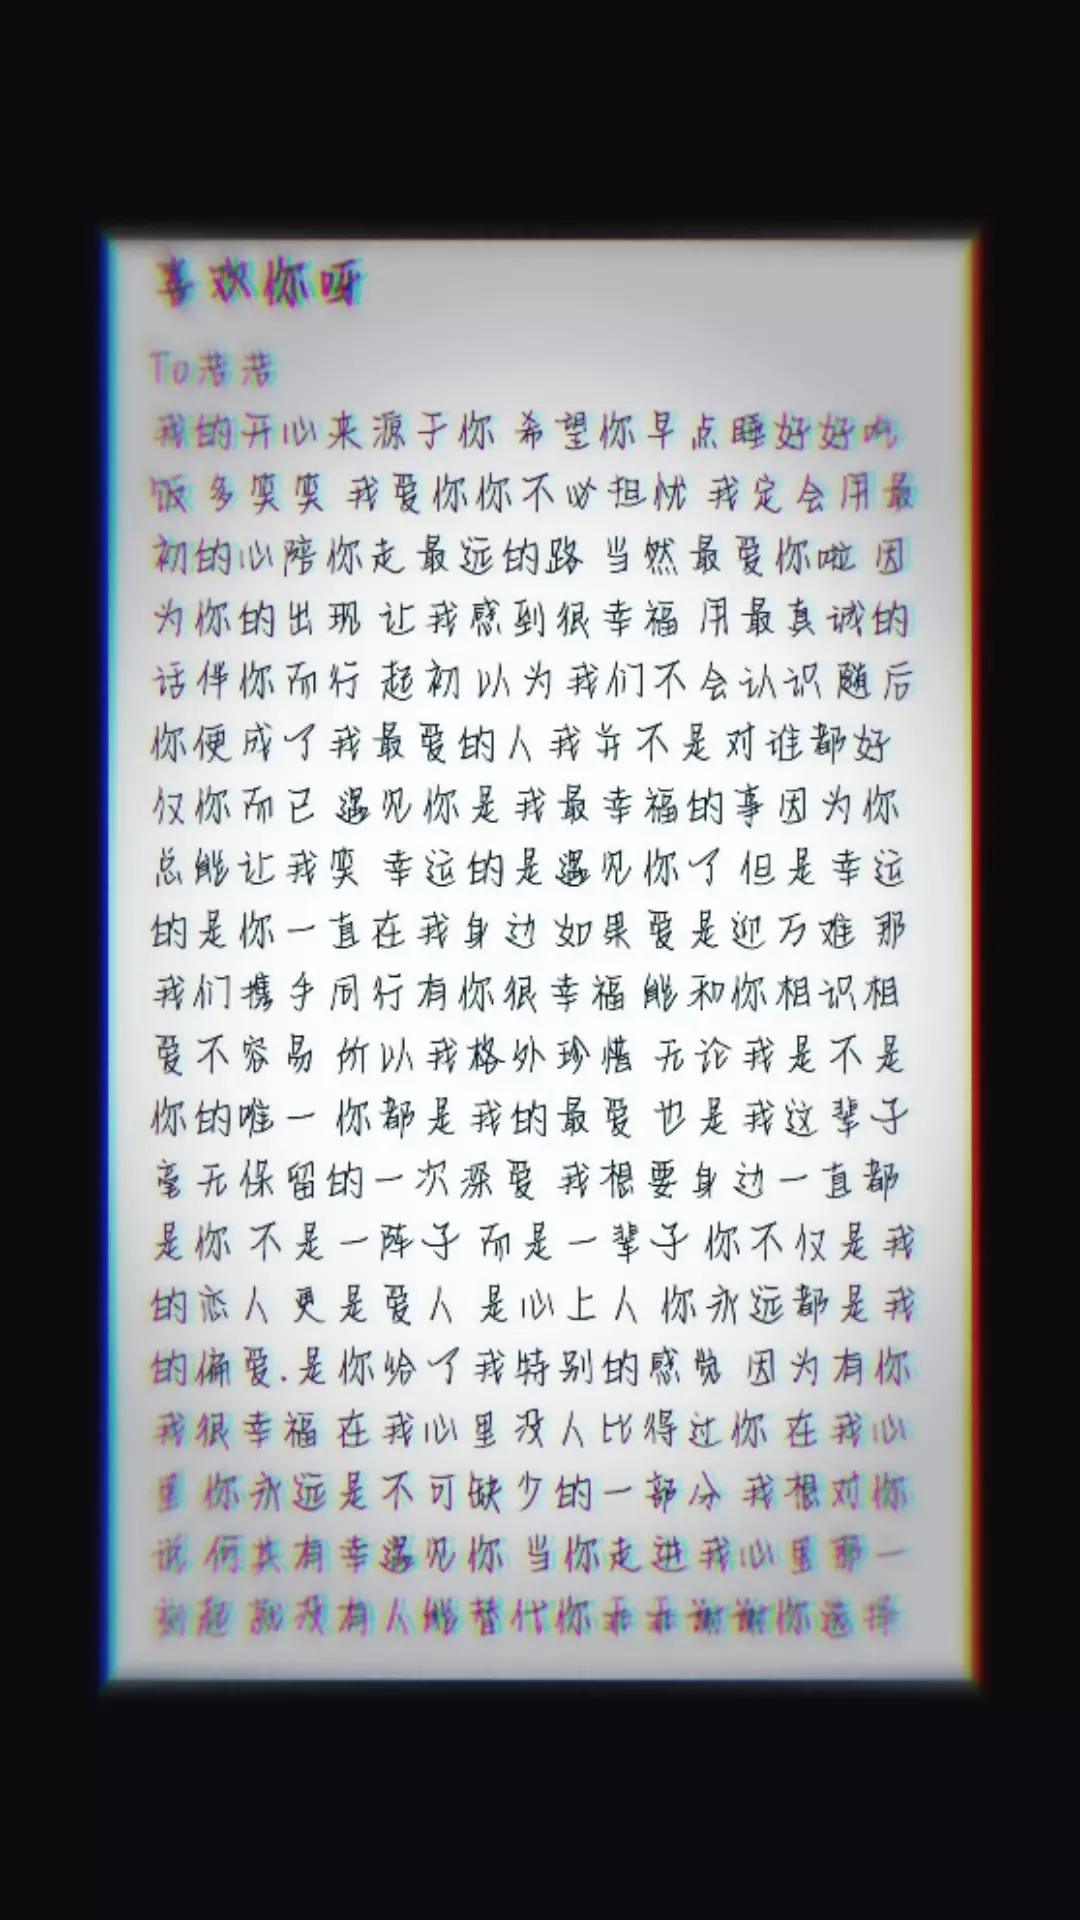 喜欢你呀
To浩浩
我的开心来源于你 希望你早点睡好好吃
饭多笑笑 我爱你你不必担忧 我定会用最
初的心陪你走最远的路 当然最爱你啦 因
为你的出现 让我感到很幸福 用最真诚的
话伴你而行 起初以为我们不会认识 随后
你便成了我最爱的人我并不是对谁都好
仅你而已 遇见你是我最幸福的事因为你
总能让我笑 幸运的是遇见你了但是幸运
的是你一直在我身边如果爱是迎万难 那
我们携手同行有你很幸福 能和你相识相
爱不容易 所以我格外珍惜 无论我是不是
你的唯一 你都是我的最爱 也是我这辈子
毫无保留的一次深爱 我想要身边一直都
是你 不是一阵子 而是一辈子你不仅是我
的恋人 更是爱人 是心上人 你永远都是我
的偏爱.是你给了我特别的感觉 因为有你
我很幸福在我心里没人比得过你在我心
里 你永远是不可缺少的一部分 我想对你
说 何其有幸遇见你 当你走进我心里那一
刻起 就没有人能替代你乖乖谢谢你选择